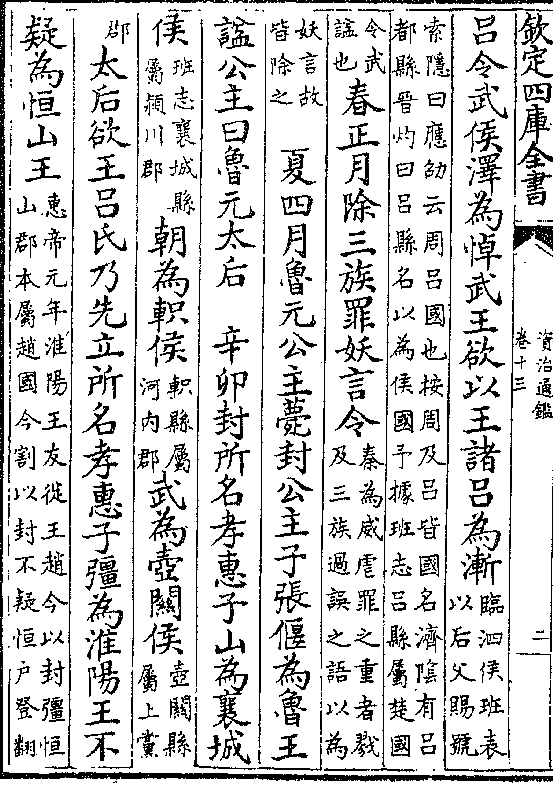 欽定四庫全書
資治通鑑
卷十三
二
吕令武侯澤為悼武王欲以王諸吕為漸臨泗侯班表
以后父賜號
索隱曰應劭云周吕國也按周及吕皆國名濟隂有吕
都縣晉灼曰吕縣名以為侯國予據班志吕縣屬楚國
令武
諡也
春正月除三族罪妖言令秦為威虐罪之重者戮
及三族過誤之語以為
妖言故
皆除之
夏四月魯元公主薨封公主子張偃為魯王
諡公主曰魯元太后 辛卯封所名孝惠子山為襄城
侯班志襄城縣
屬潁川郡
朝為軹侯軹縣屬
河内郡
武為壺關侯壺關縣
屬上黨
郡
太后欲王吕氏乃先立所名孝惠子彊為淮陽王不
疑為恒山王惠帝元年淮陽王友徙王趙今以封彊恒
山郡本屬趙國今割以封不疑恒户登翻